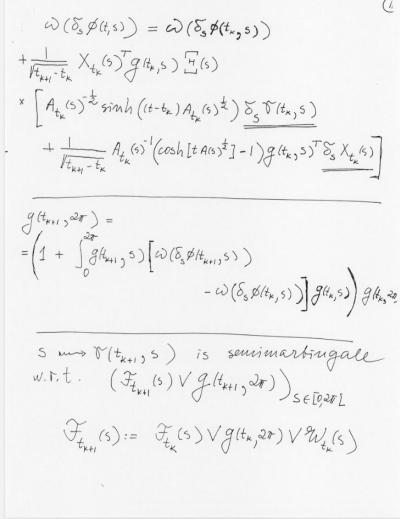 (2
ω(δ_s ϕ(t,s)) = ω(δ_s ϕ(t_k,s))
+ 1/√(t_{k+1}-t_k) X_{t_k}(s)^T g(t_k,s) Ξ(s)
× [ A_{t_k}(s)^{-1/2} sinh((t-t_k) A_{t_k}(s)^{1/2}) δ_s γ(t_k,s)
+ 1/√(t_{k+1}-t_k) A_{t_k}(s)^{-1} (cosh[t A(s)^{1/2}] -1) g(t_k,s)^T δ_s X_{t_k}(s) ]
g(t_{k+1}, 2π) =
= ( 1 + ∫_0^{2π} g(t_{k+1},s) [ ω(δ_s ϕ(t_{k+1},s))
- ω(δ_s ϕ(t_k,s)) ] g(t_k,s) ) g(t_k, 2π
s ⟿ γ(t_{k+1}, s) is semimartingale
w.r.t. (ℱ_{t_{k+1}}(s) ∨ g(t_{k+1}, 2π))_{s∈[0,2π[}
ℱ_{t_{k+1}}(s) := ℱ_{t_k}(s) ∨ g(t_k, 2π) ∨ 𝒲_{t_k}(s)